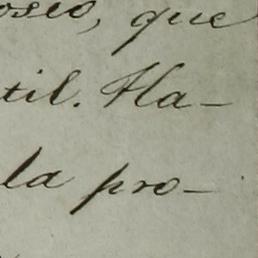 oseo, que
til. Ha-
la pro-